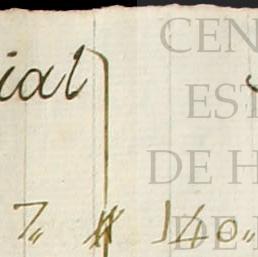 ial
7 " # 140 "
CEN
EST
DE H
DE